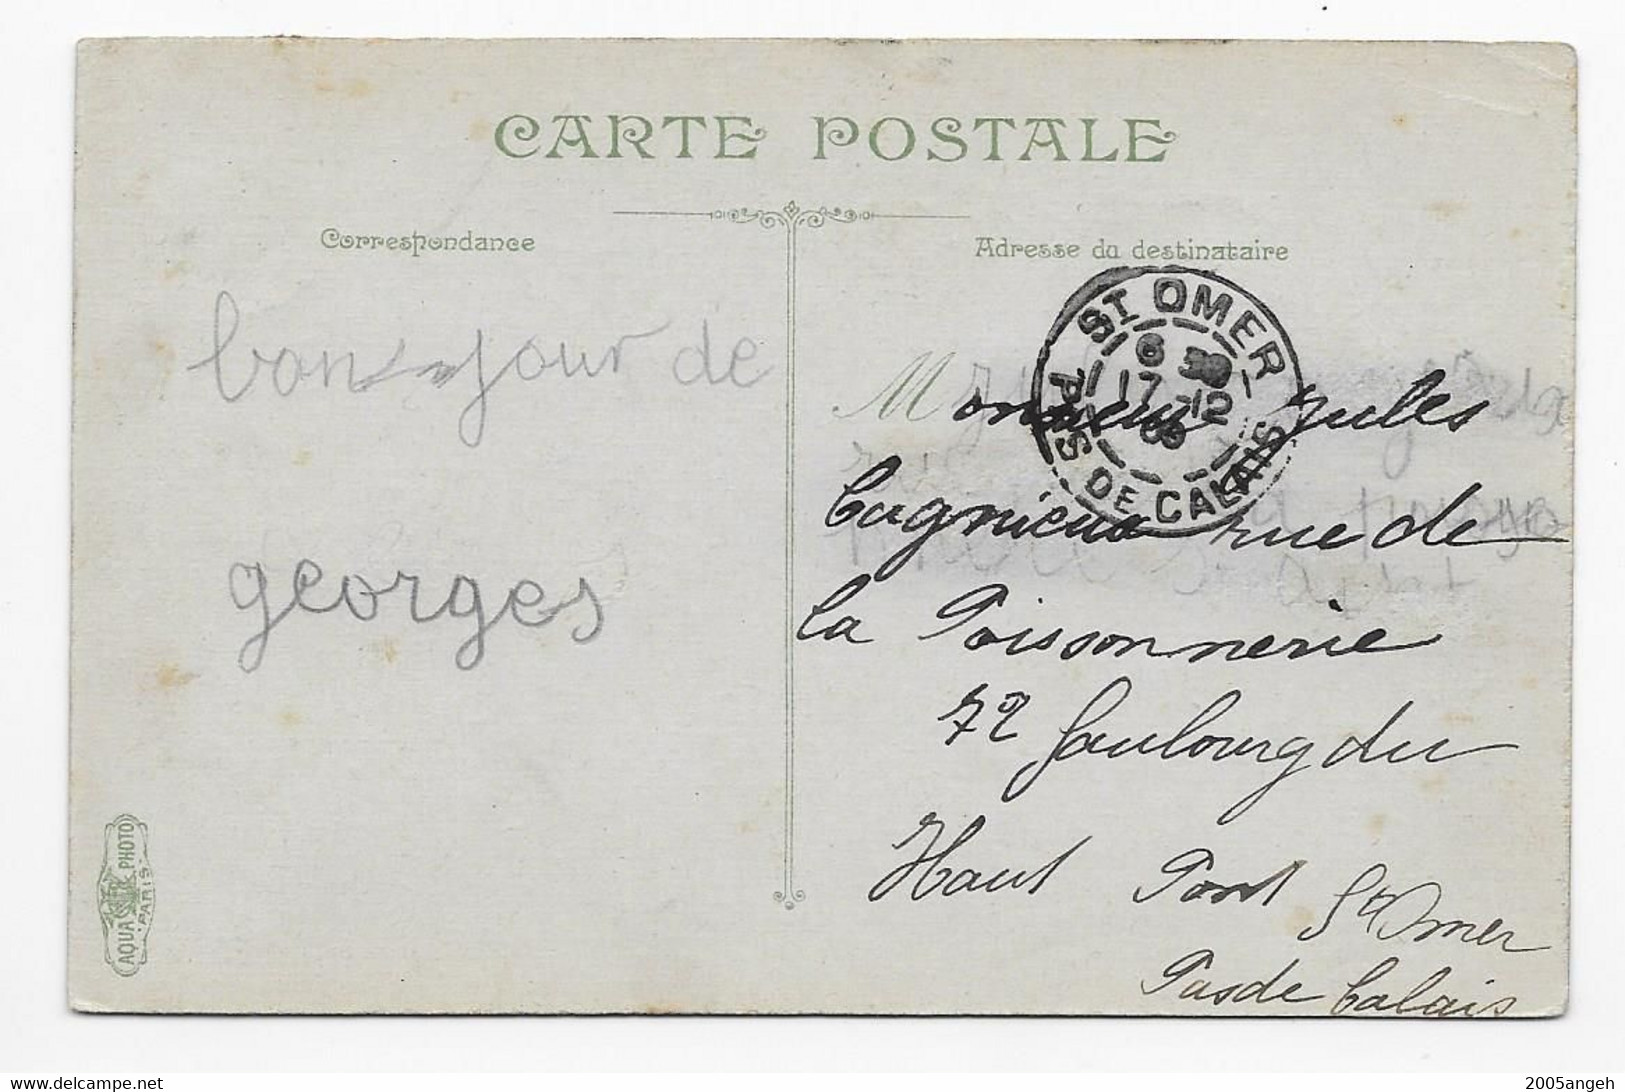 CARTE POSTALE
Correspondance
Adresse du destinataire
bonjour de
georges
ST OMER
6
17 -12
09
PAS DE CALAIS
Monsieur Jules
Cugnieux rue de
la Poissonnerie
72 faubourg du
Haut Pont St Omer
Pas de Calais
AQUA PHOTO
PARIS
delcampe.net
2005sangeh